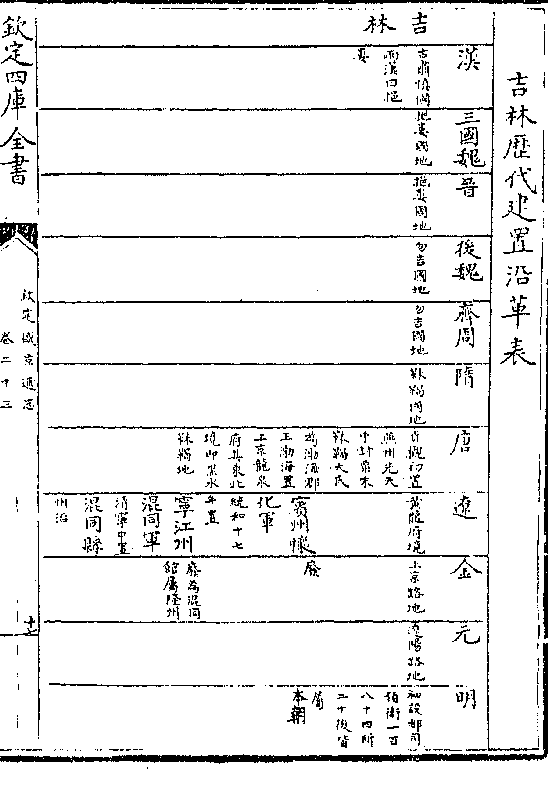 吉林歷代建置沿革表
吉林
漢
古肅慎國
兩漢曰挹
婁
三國魏
挹婁國地
晉
挹婁國地
後魏
勿吉國地
齊周
勿吉國地
隋
靺鞨國地
唐
貞觀初置
燕州先天
中封粟末
靺鞨大氏
為渤海郡
王渤海置
上京龍泉
府其東北
境即黑水
靺鞨地
遼
黃龍府境
賓州懷
化軍
統和十七
年置
寧江州
混同軍
清寧中置
混同縣
州治
金
上京路地
廢
廢為混同
館屬隆州
元
遼陽路地
明
初設都司
領衛一百
八十四所
二十後皆
屬
本朝
欽定四庫全書
欽定盛京通志
卷二十三
十二